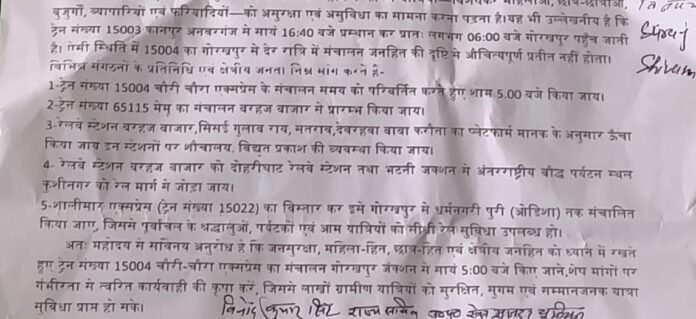 बुजुर्गों, व्यापारियों एवं फरियादियों—को असुरक्षा एवं असुविधा का सामना करना पड़ता है।यह भी उल्लेखनीय है कि
ट्रेन संख्या 15003 कानपुर अनवरगंज से सायं 16:40 बजे प्रस्थान कर प्रातः लगभग 06:00 बजे गोरखपुर पहुँच जाती
है। ऐसी स्थिति में 15004 का गोरखपुर से देर रात्रि में संचालन जनहित की दृष्टि से औचित्यपूर्ण प्रतीत नहीं होता।
विभिन्न संगठनों के प्रतिनिधि एवं क्षेत्रीय जनता निम्न मांग करते है-
1-ट्रेन संख्या 15004 चौरी चौरा एक्सप्रेस के संचालन समय को परिवर्तित करते हुए शाम 5.00 बजे किया जाय।
2-ट्रेन संख्या 65115 मेमू का संचालन बरहज बाजार से प्रारम्भ किया जाय।
3-रेलवे स्टेशन बरहज बाजार,सिसई गुलाब राय, सतराव,देवरहवा बाबा करौता का प्लेटफार्म मानक के अनुसार ऊँचा
किया जाय इन स्टेशनों पर शौचालय, विद्युत प्रकाश की व्यवस्था किया जाय।
4- रेलवे स्टेशन बरहज बाजार को दोहरीघाट रेलवे स्टेशन तथा भटनी जंक्शन से अंतरराष्ट्रीय बौद्ध पर्यटन स्थल
कुशीनगर को रेल मार्ग से जोड़ा जाय।
5-शालीमार एक्सप्रेस (ट्रेन संख्या 15022) का विस्तार कर इसे गोरखपुर से धर्मनगरी पुरी (ओडिशा) तक संचालित
किया जाए, जिससे पूर्वांचल के श्रद्धालुओं, पर्यटकों एवं आम यात्रियों को सीधी रेल सुविधा उपलब्ध हो।
अतः महोदय से सविनय अनुरोध है कि जनसुरक्षा, महिला-हित, छात्र-हित एवं क्षेत्रीय जनहित को ध्यान में रखते
हुए ट्रेन संख्या 15004 चौरी-चौरा एक्सप्रेस का संचालन गोरखपुर जंक्शन से सायं 5:00 बजे किए जाने,शेष मांगों पर
गंभीरता से त्वरित कार्यवाही की कृपा करें, जिससे लाखों ग्रामीण यात्रियों को सुरक्षित, सुगम एवं सम्मानजनक यात्रा
सुविधा प्राप्त हो सके।
Suraj
Shivam
विनोद कुमार सिंह राज्य